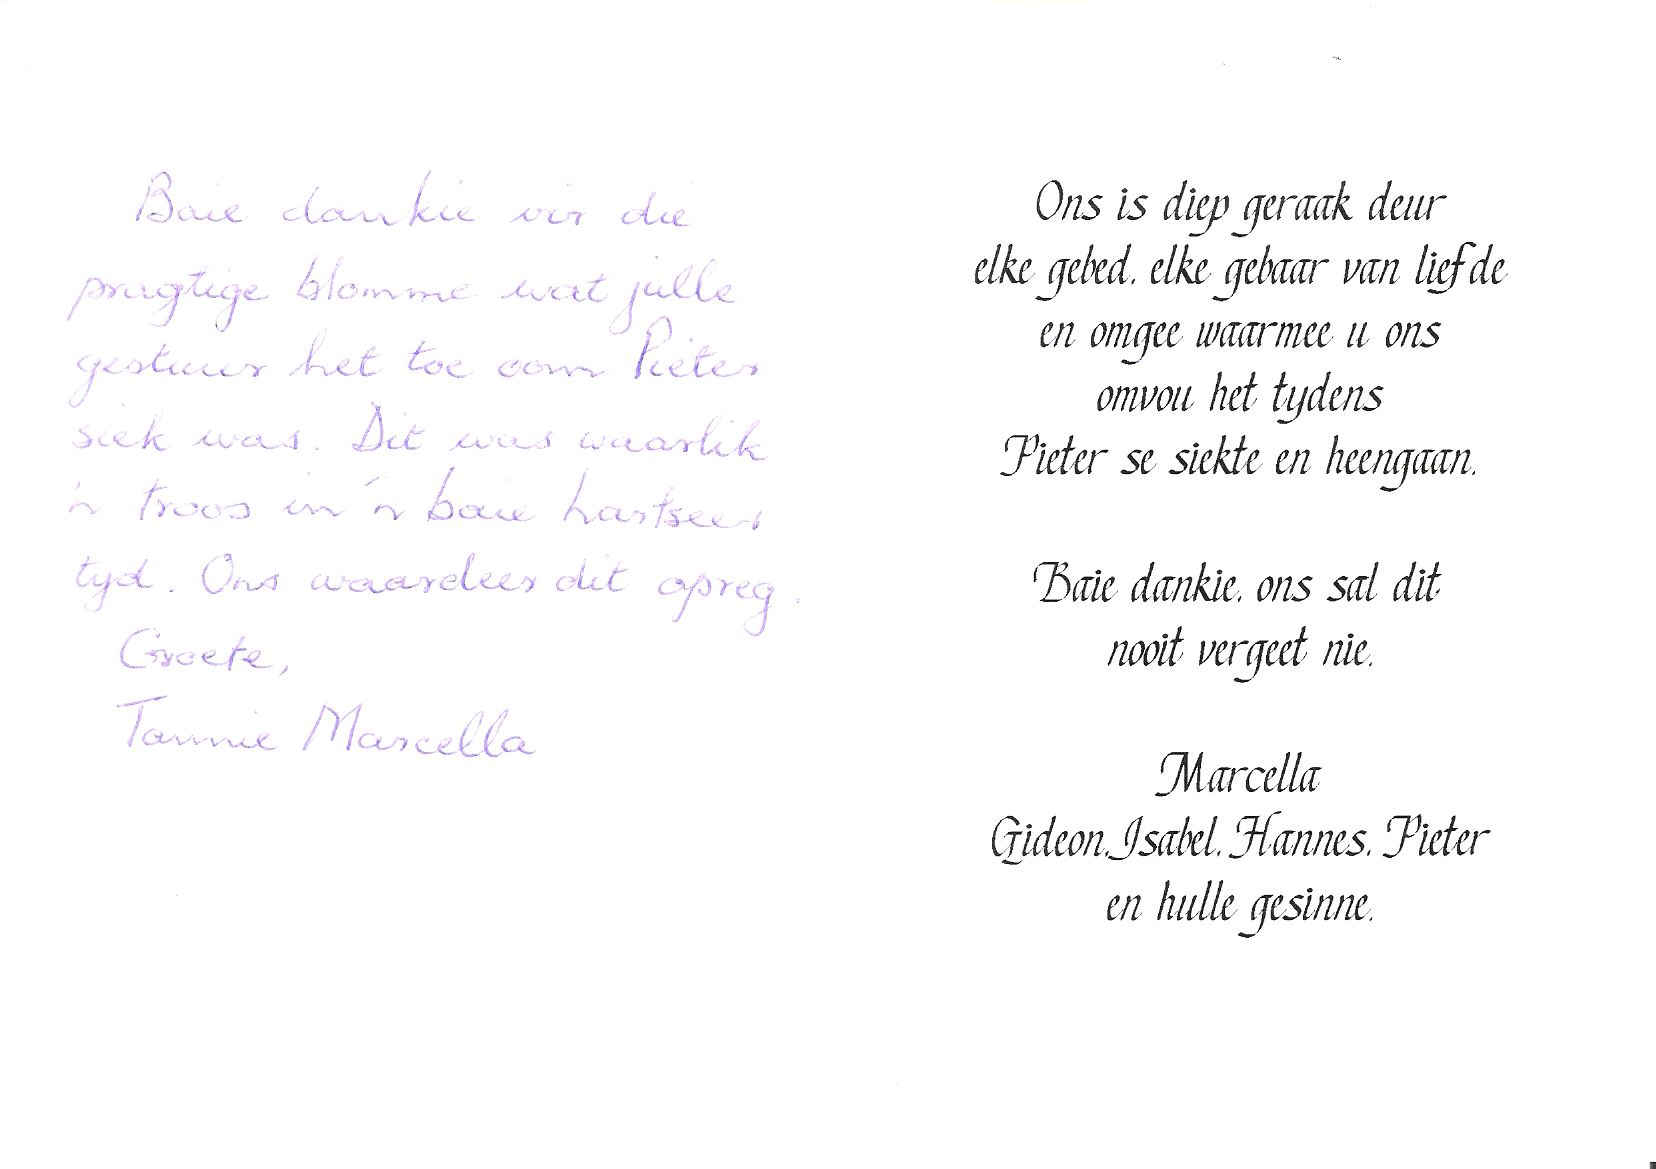 Baie dankie vir die
pragtige blomme wat julle
gestuur het toe oom Pieter
siek was. Dit was waarlik
'n troos in 'n baie hartseer
tyd. Ons waardeer dit opreg.
Groete,
Tannie Marcella
Ons is diep geraak deur
elke gebed, elke gebaar van liefde
en omgee waarmee u ons
omvou het tydens
Pieter se siekte en heengaan.
Baie dankie, ons sal dit
nooit vergeet nie.
Marcella
Gideon, Isabel, Hannes, Pieter
en hulle gesinne.